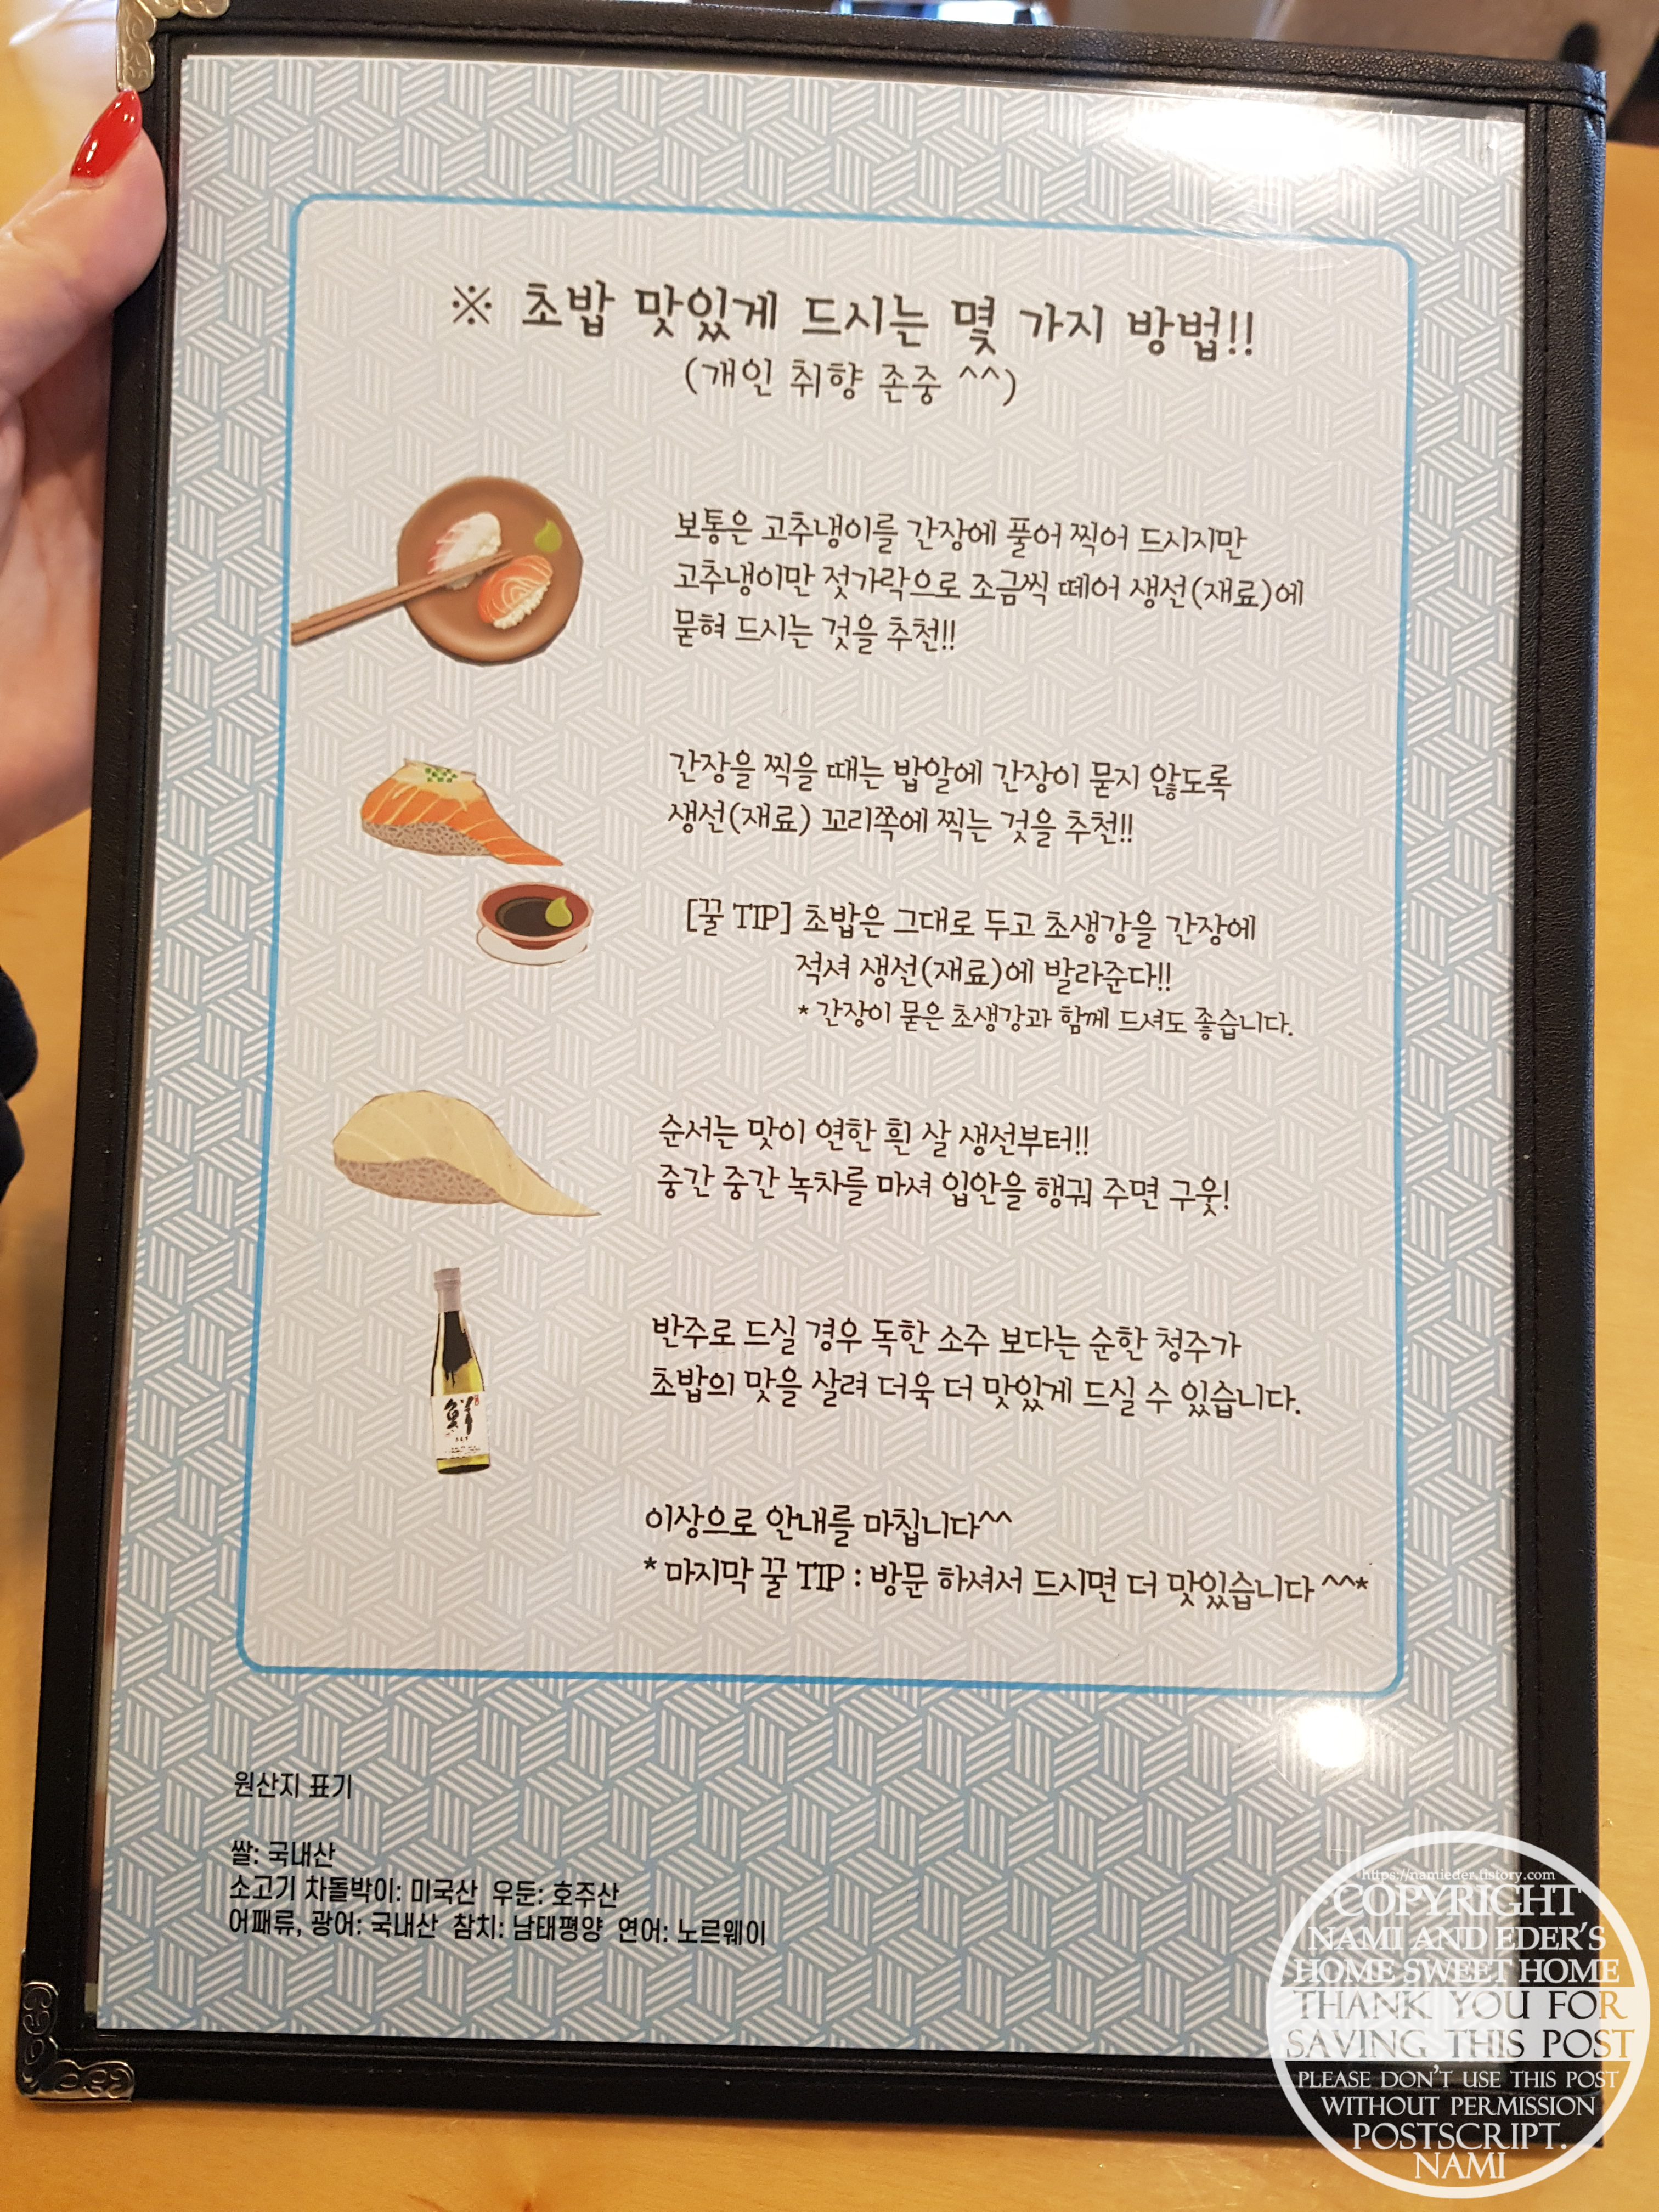 ※ 초밥 맛있게 드시는 몇 가지 방법!!
(개인 취향 존중 ^^)
보통은 고추냉이를 간장에 풀어 찍어 드시지만
고추냉이만 젓가락으로 조금씩 떼어 생선(재료)에
묻혀 드시는 것을 추천!!
간장을 찍을 때는 밥알에 간장이 묻지 않도록
생선(재료) 꼬리쪽에 찍는 것을 추천!!
[꿀 TIP] 초밥은 그대로 두고 초생강을 간장에
적셔 생선(재료)에 발라준다!!
* 간장이 묻은 초생강과 함께 드셔도 좋습니다.
순서는 맛이 연한 흰 살 생선부터!!
중간 중간 녹차를 마셔 입안을 행궈 주면 구웃!
鮮
반주로 드실 경우 독한 소주 보다는 순한 청주가
초밥의 맛을 살려 더욱 더 맛있게 드실 수 있습니다.
이상으로 안내를 마칩니다^^
* 마지막 꿀 TIP : 방문 하셔서 드시면 더 맛있습니다 ^^*
원산지 표기
쌀: 국내산
소고기 차돌박이: 미국산 우둔: 호주산
어패류, 광어: 국내산 참치: 남태평양 연어: 노르웨이
https://namieder.tistory.com
COPYRIGHT
NAMI AND EDER'S
HOME SWEET HOME
THANK YOU FOR
SAVING THIS POST
PLEASE DON'T USE THIS POST
WITHOUT PERMISSION
POSTSCRIPT.
NAMI